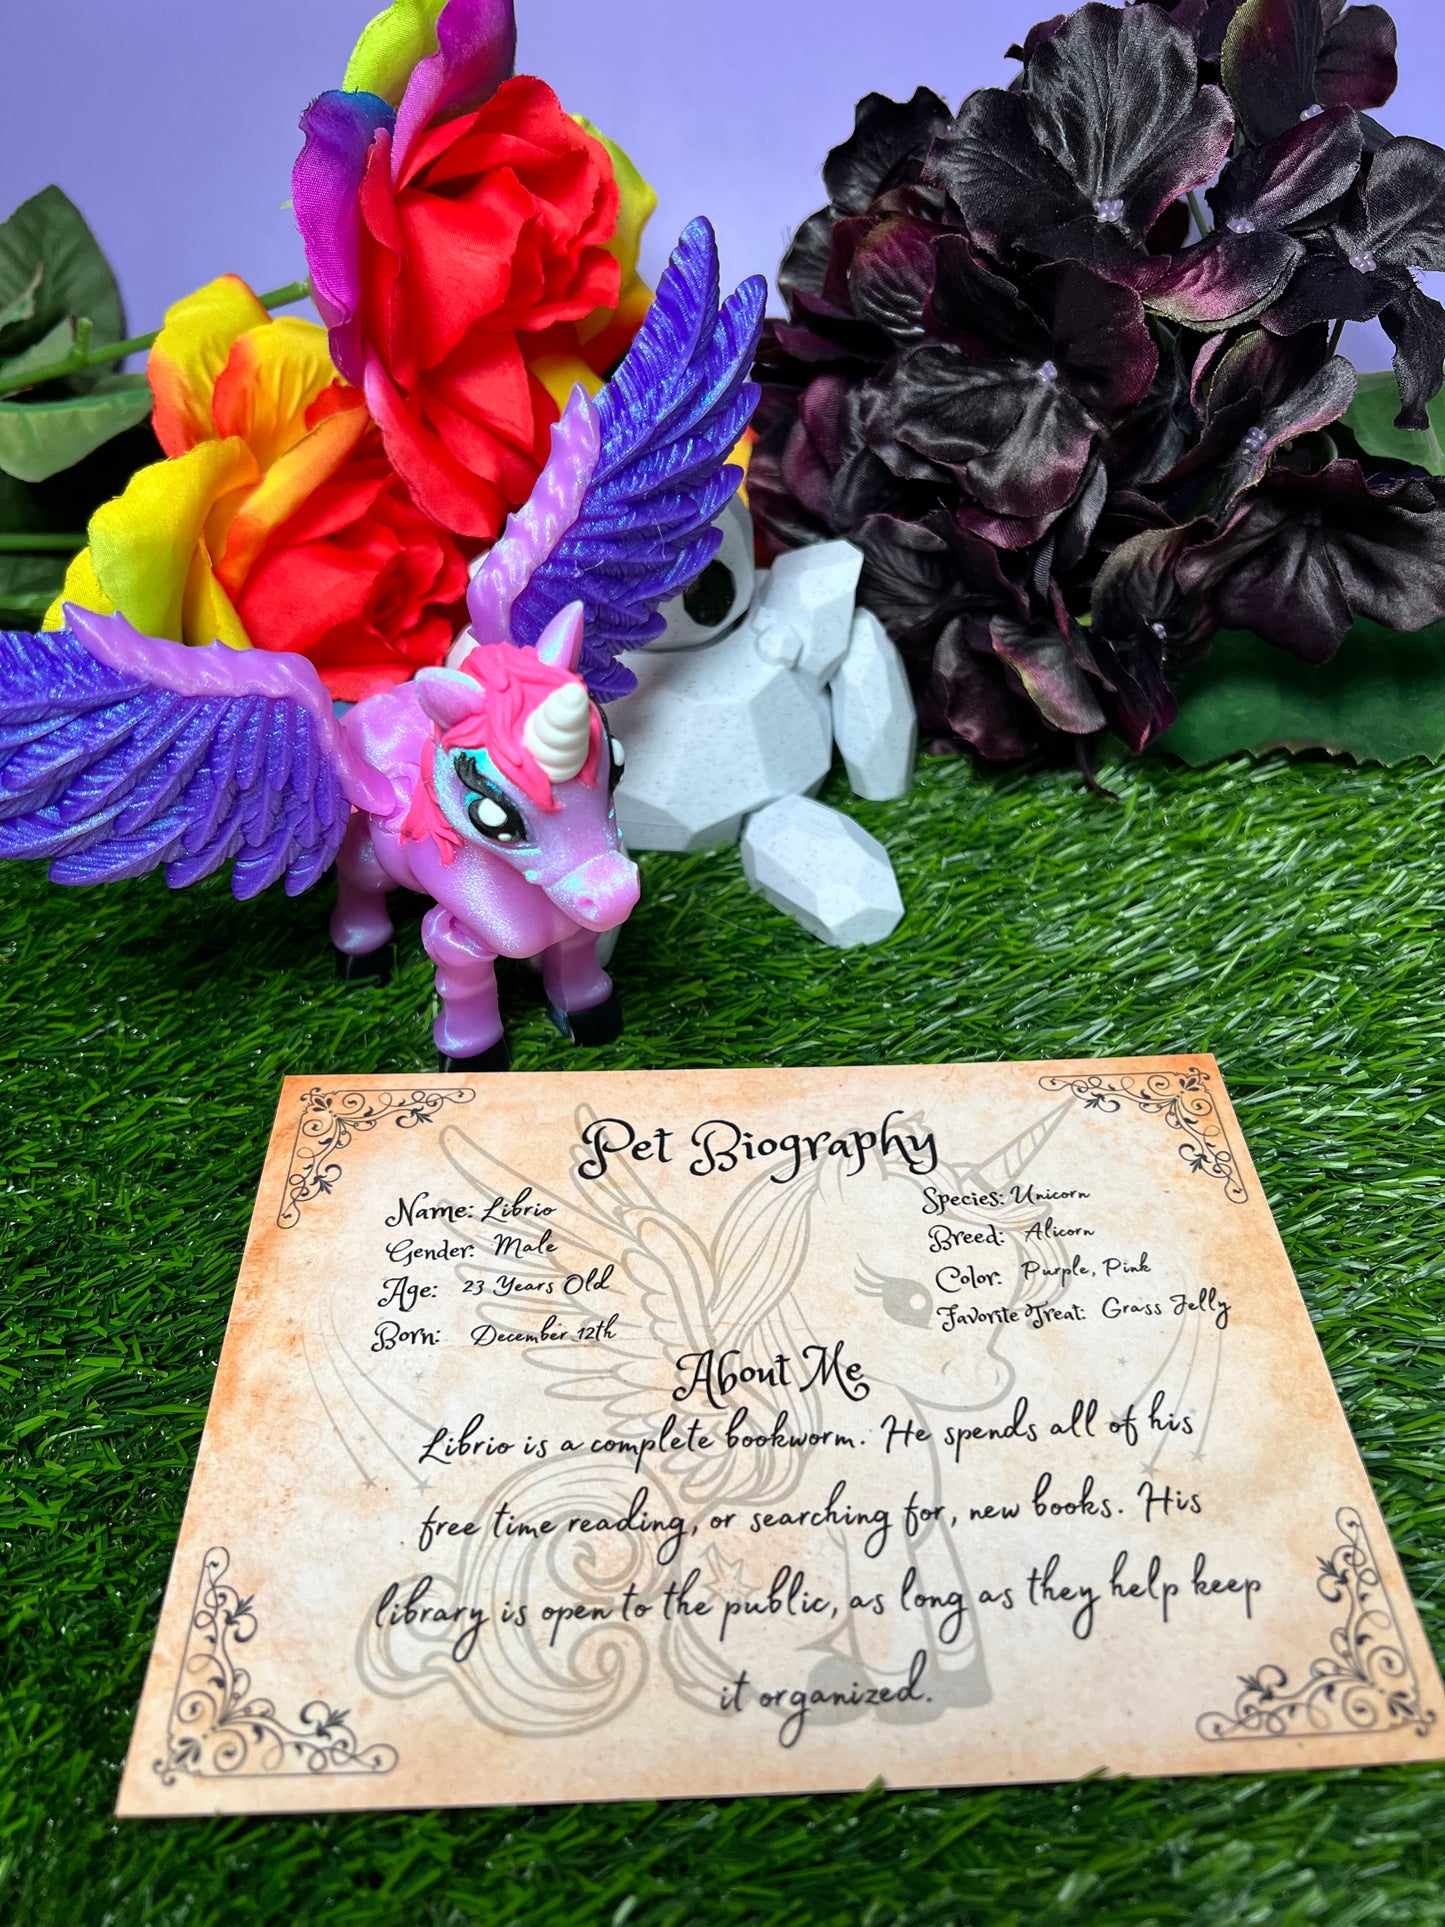 Pet Biography
Name: Librio
Gender: Male
Age: 23 Years Old
Born: December 12th
Species: Unicorn
Breed: Alicorn
Color: Purple, Pink
Favorite Treat: Grass Jelly
About Me
Librio is a complete bookworm. He spends all of his
free time reading, or searching for, new books. His
library is open to the public, as long as they help keep
it organized.